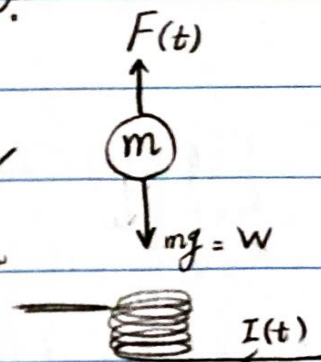 F(t)
m
mg = W
I(t)